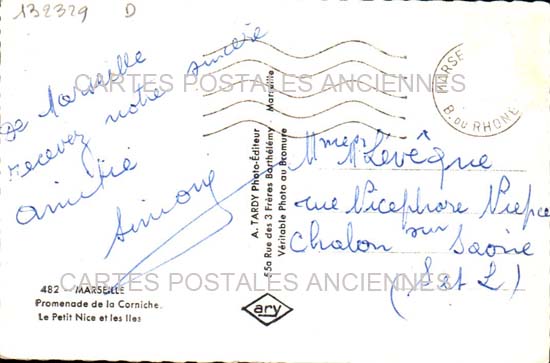 132329 D
De Marseille
recevez notre sincère
amitié
Simone
CARTES POSTALES ANCIENNES
MARSE
B. DU RHONE
A. TARDY Photo-Éditeur
55a Rue des 3 Frères Barthélémy - Marseille
Véritable Photo au Bromure
Lévêque
rue Nicephore Niepce
Chalon sur Saône
(S et L)
CARTES POSTALES ANCIENNES
482 - MARSEILLE
Promenade de la Corniche.
Le Petit Nice et les Iles
ary